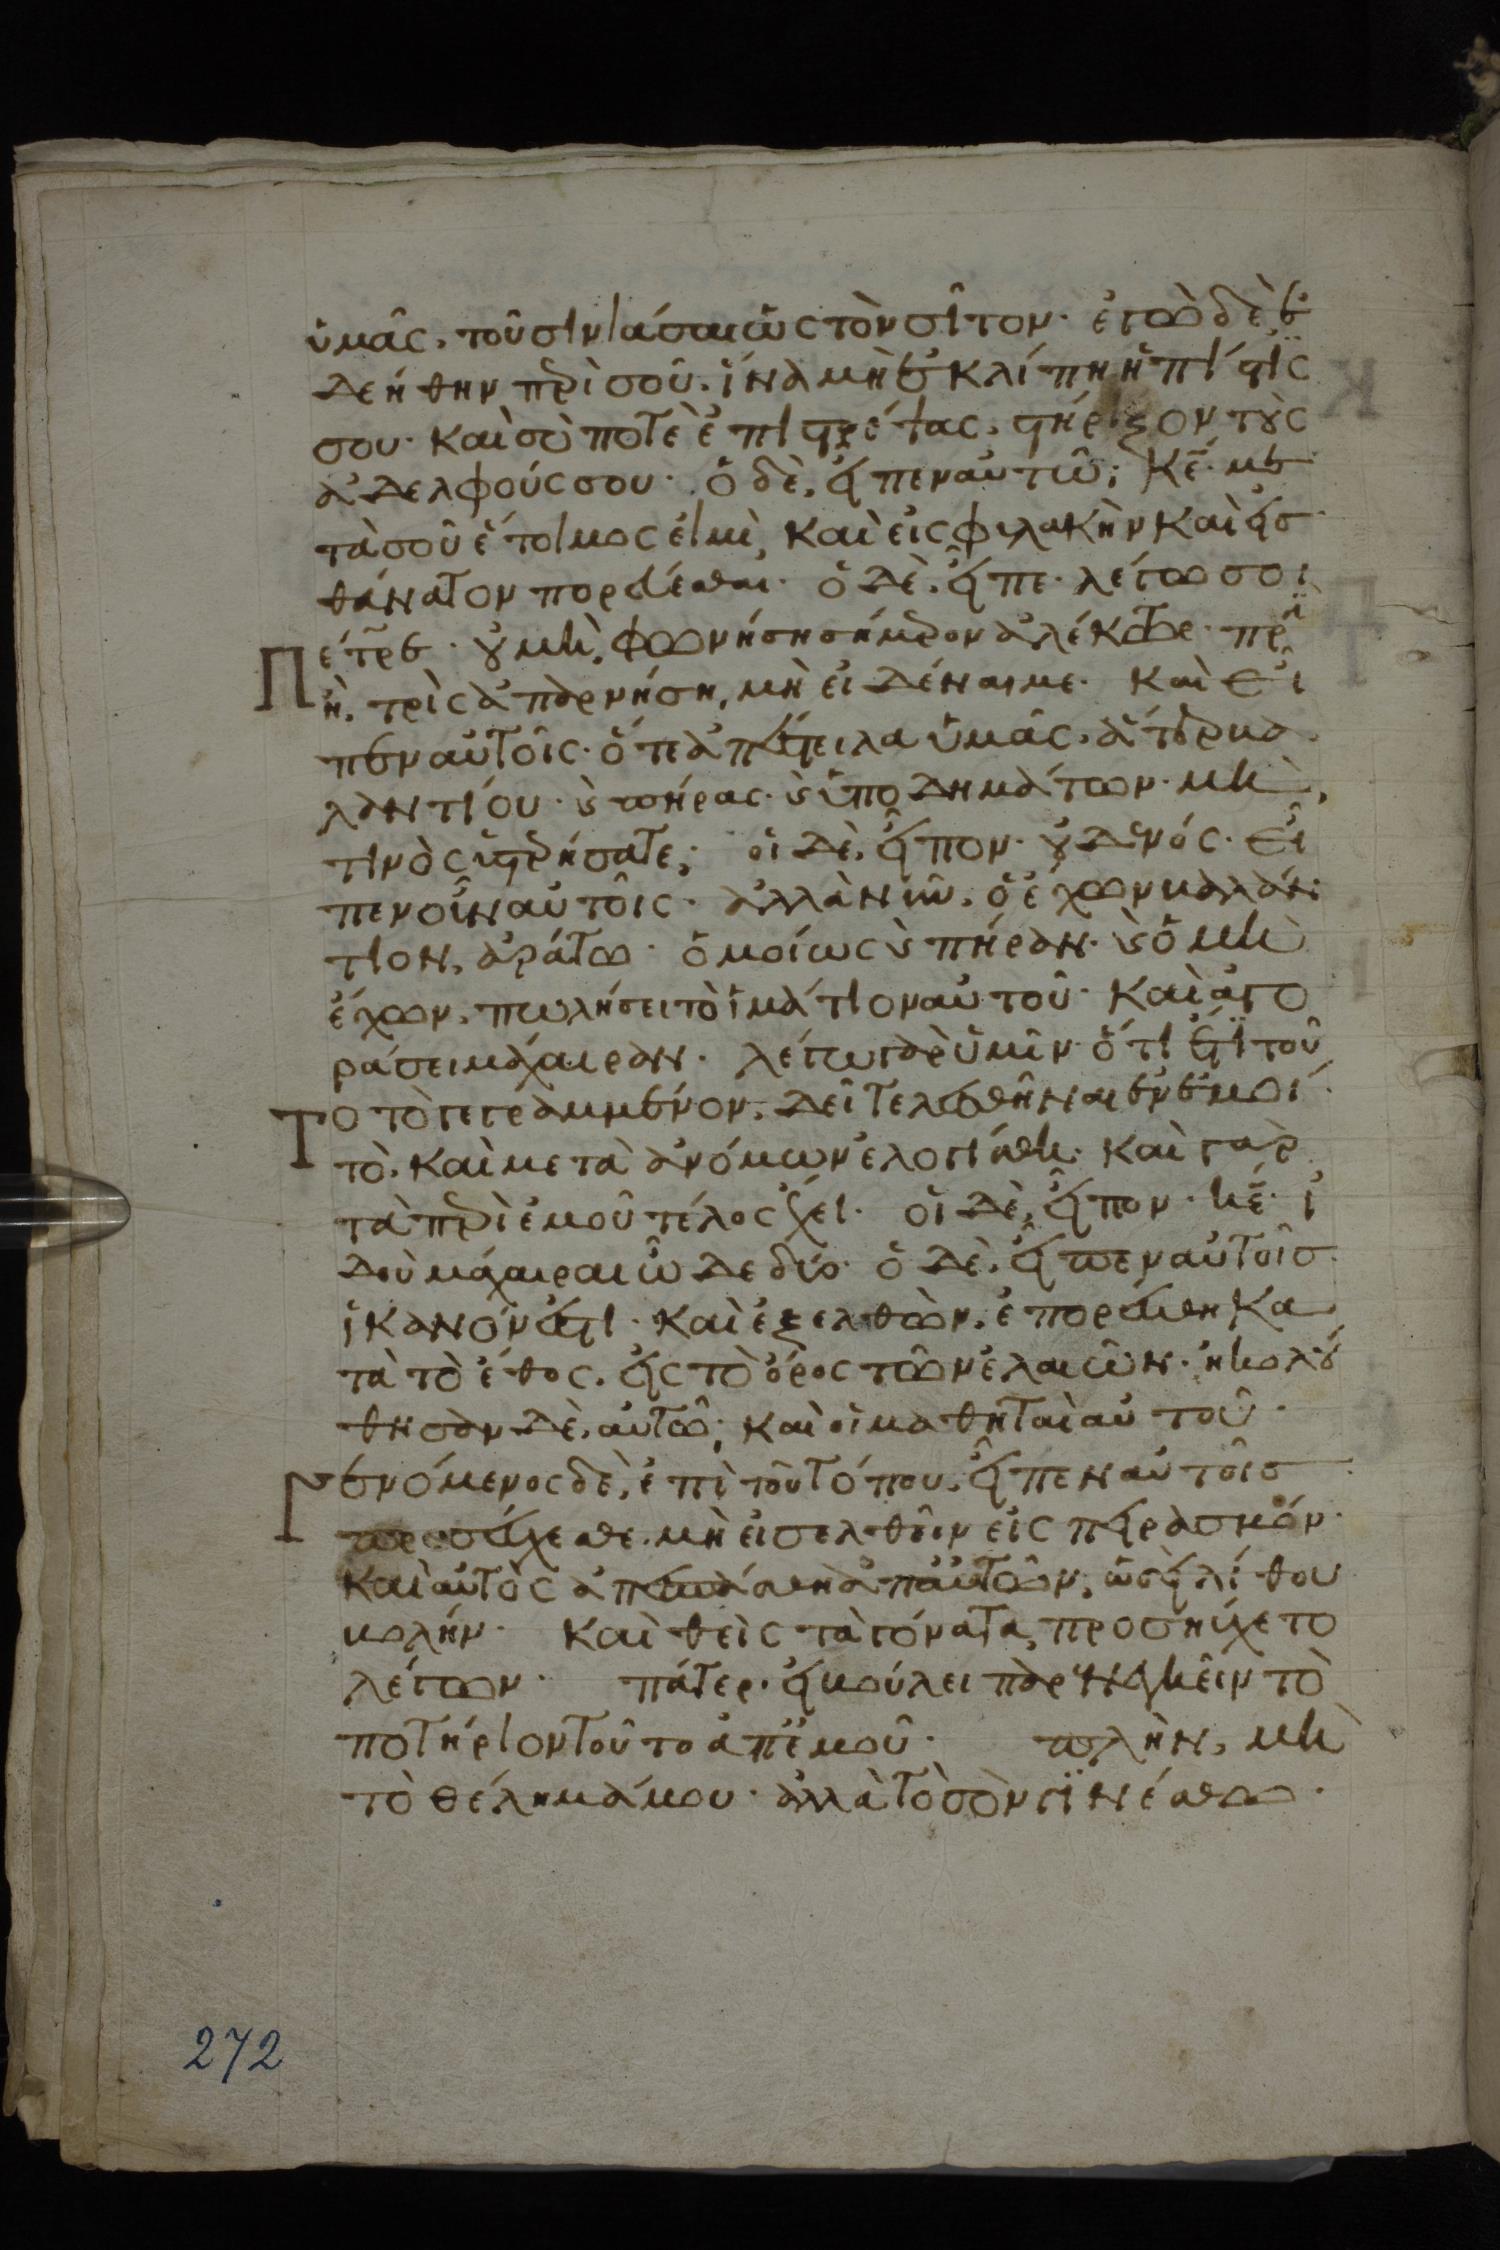 ὑμᾶς. τοῦ σινιάσαι ὡς τὸν σῖτον· ἐγὼ δὲ ἐ
δεήθην περὶ σοῦ. ἵνα μὴ ἐκλίπη ἡ πίστίς
σου· καὶ σὺ ποτὲ ἐπιστρέψας. στήριξον τοὺς
ἀδελφούς σου· ὁ δὲ, εἶπεν αὐτῶ; κε̄· με
τὰ σοῦ ἕτοιμος εἰμὶ, καὶ εἰς φυλακὴν καὶ εἰσ
θάνατον πορεύεσθαι· ὁ δὲ. εἶπε· λέγω σοι
Πέτρε· οὐ μὴ, φωνήση σήμερον ἀλέκτωρ· πρὶ
ἢ. τρὶς ἀπαρνήση, μὴ εἰδέναι με· καὶ εἶ
πεν αὐτοῖς· ὅτε ἀπέστειλα ὑμᾶς. ἄτερ βα
λαντίου· ϗ πήρας· ϗ ὑποδημάτων· μή
τινὸς ὑστερήσατε; οἱ δὲ. εἶπον· οὐδενός· εἶ
πεν οὖν αὐτοῖς· ἀλλὰ νῦν. ὁ ἔχων βαλάν
τιον, ἀράτω· ὁμοίως ϗ πήραν· ϗ ὁ μὴ
ἔχων. πωλήσει τὸ ἱμάτιον αὐτοῦ· καὶ ἀγο
ράσει μάχαιραν· λέγω γὰρ ὑμῖν· ὅτι ἔτι τοῦ
Το τὸ γεγραμμένον. δεῖ τελεσθῆναι ἐν ἐμοί·
τὸ. καὶ μετὰ ἀνόμων ἐλογίσθη· καὶ γαρ
τὰ περὶ ἐμοῦ τέλος ἔχει· οἱ δὲ, εἶπον· κε̄· ἰ
δοὺ μάχαιραι ὧδε δύο· ὁ δὲ. εἶπεν αὐτοῖσ·
ἱκανόν ἐστι· καὶ ἐξελθὼν. ἐπορεύθη κα
τὰ τὸ ἔθος. εἰς τὸ ὄρος τῶν ἐλαιῶν· ἠκολού
θησαν δὲ. αὐτῶ; καὶ οἱ μαθηταὶ αὐτοῦ·
Γενόμενος δὲ, ἐπὶ τοῦ τόπου. εἶπεν αὐτοῖσ
προσεύχεσθε. μὴ εἰσελθεῖν εἰς πειρασμόν·
καὶ αὐτὸς ἀπεσπάσθη ἀπ' αὐτῶν, ὡσεὶ λίθου
βολήν· καὶ θεὶς τὰ γόνατα, προσηύχετο
λέγων· πάτερ. εἰ βούλει παρενεγκεῖν τὸ
ποτήριον τοῦτο ἀπ' ἐμοῦ· πλὴν, μὴ
τὸ θέλημά μου· ἀλλὰ τὸ σὸν γινέσθω·
272